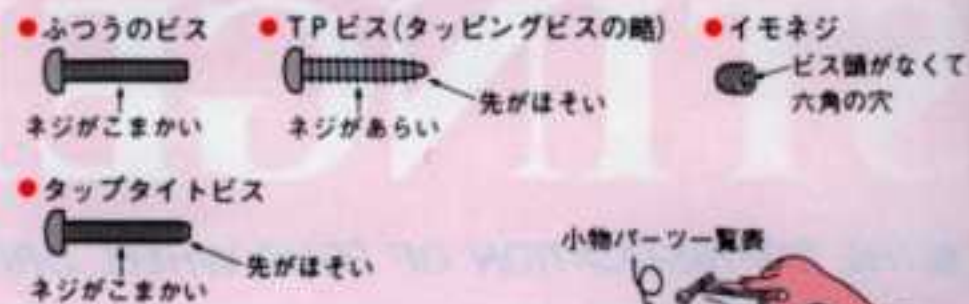 ●ふつうのビス
ネジがこまかい
●TPビス(タッピングビスの略)
ネジがあらい
先がほそい
●イモネジ
ビス頭がなくて
六角の穴
●タップタイトビス
ネジがこまかい
先がほそい
小物パーツ一覧表